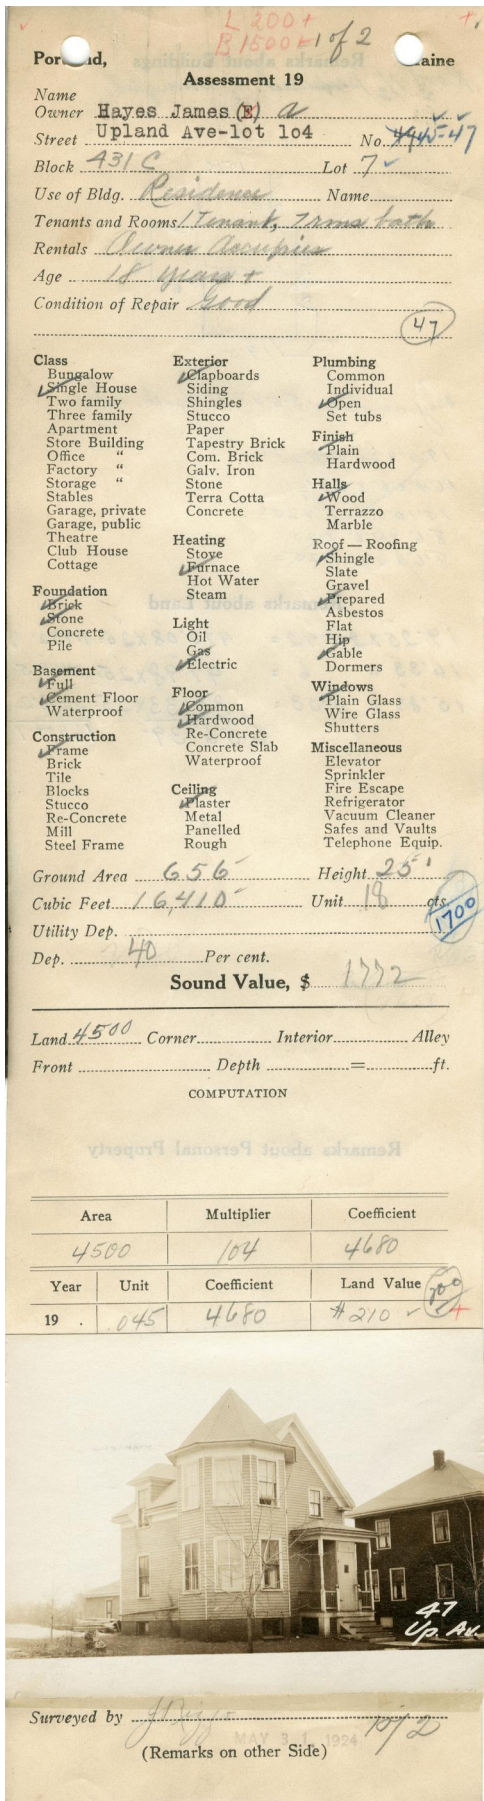 L 200+
B 1500 1 of 2
Portland, Maine
Assessment 19
Name
Owner Hayes James (E) a
Street Upland Ave-lot 104 No. 45-47
Block 431 C Lot 7
Use of Bldg. Residence Name
Tenants and Rooms 1 Tenant, 7 rms bath
Rentals Owner Occupies
Age 18 years +
Condition of Repair Good
47
Class
Bungalow
Single House
Two family
Three family
Apartment
Store Building
Office "
Factory "
Storage "
Stables
Garage, private
Garage, public
Theatre
Club House
Cottage
Foundation
Brick
Stone
Concrete
Pile
Basement
Full
Cement Floor
Waterproof
Construction
Frame
Brick
Tile
Blocks
Stucco
Re-Concrete
Mill
Steel Frame
Exterior
Clapboards
Siding
Shingles
Stucco
Paper
Tapestry Brick
Com. Brick
Galv. Iron
Stone
Terra Cotta
Concrete
Heating
Stove
Furnace
Hot Water
Steam
Light
Oil
Gas
Electric
Floor
Common
Hardwood
Re-Concrete
Concrete Slab
Waterproof
Ceiling
Plaster
Metal
Panelled
Rough
Plumbing
Common
Individual
Open
Set tubs
Finish
Plain
Hardwood
Halls
Wood
Terrazzo
Marble
Roof — Roofing
Shingle
Slate
Gravel
Prepared
Asbestos
Flat
Hip
Gable
Dormers
Windows
Plain Glass
Wire Glass
Shutters
Miscellaneous
Elevator
Sprinkler
Fire Escape
Refrigerator
Vacuum Cleaner
Safes and Vaults
Telephone Equip.
Ground Area 656 Height 25'
Cubic Feet 16,410 Unit 18 cts.
1700
Utility Dep.
Dep. 40 Per cent.
Sound Value, $ 1772
Land 4500 Corner Interior Alley
Front Depth = ft.
COMPUTATION
Area Multiplier Coefficient
4500 104 4680
Year Unit Coefficient Land Value 200
19 . .045 4680 # 210 +
47
Up. Av.
Surveyed by
MAY 31 1924 10/2
(Remarks on other Side)